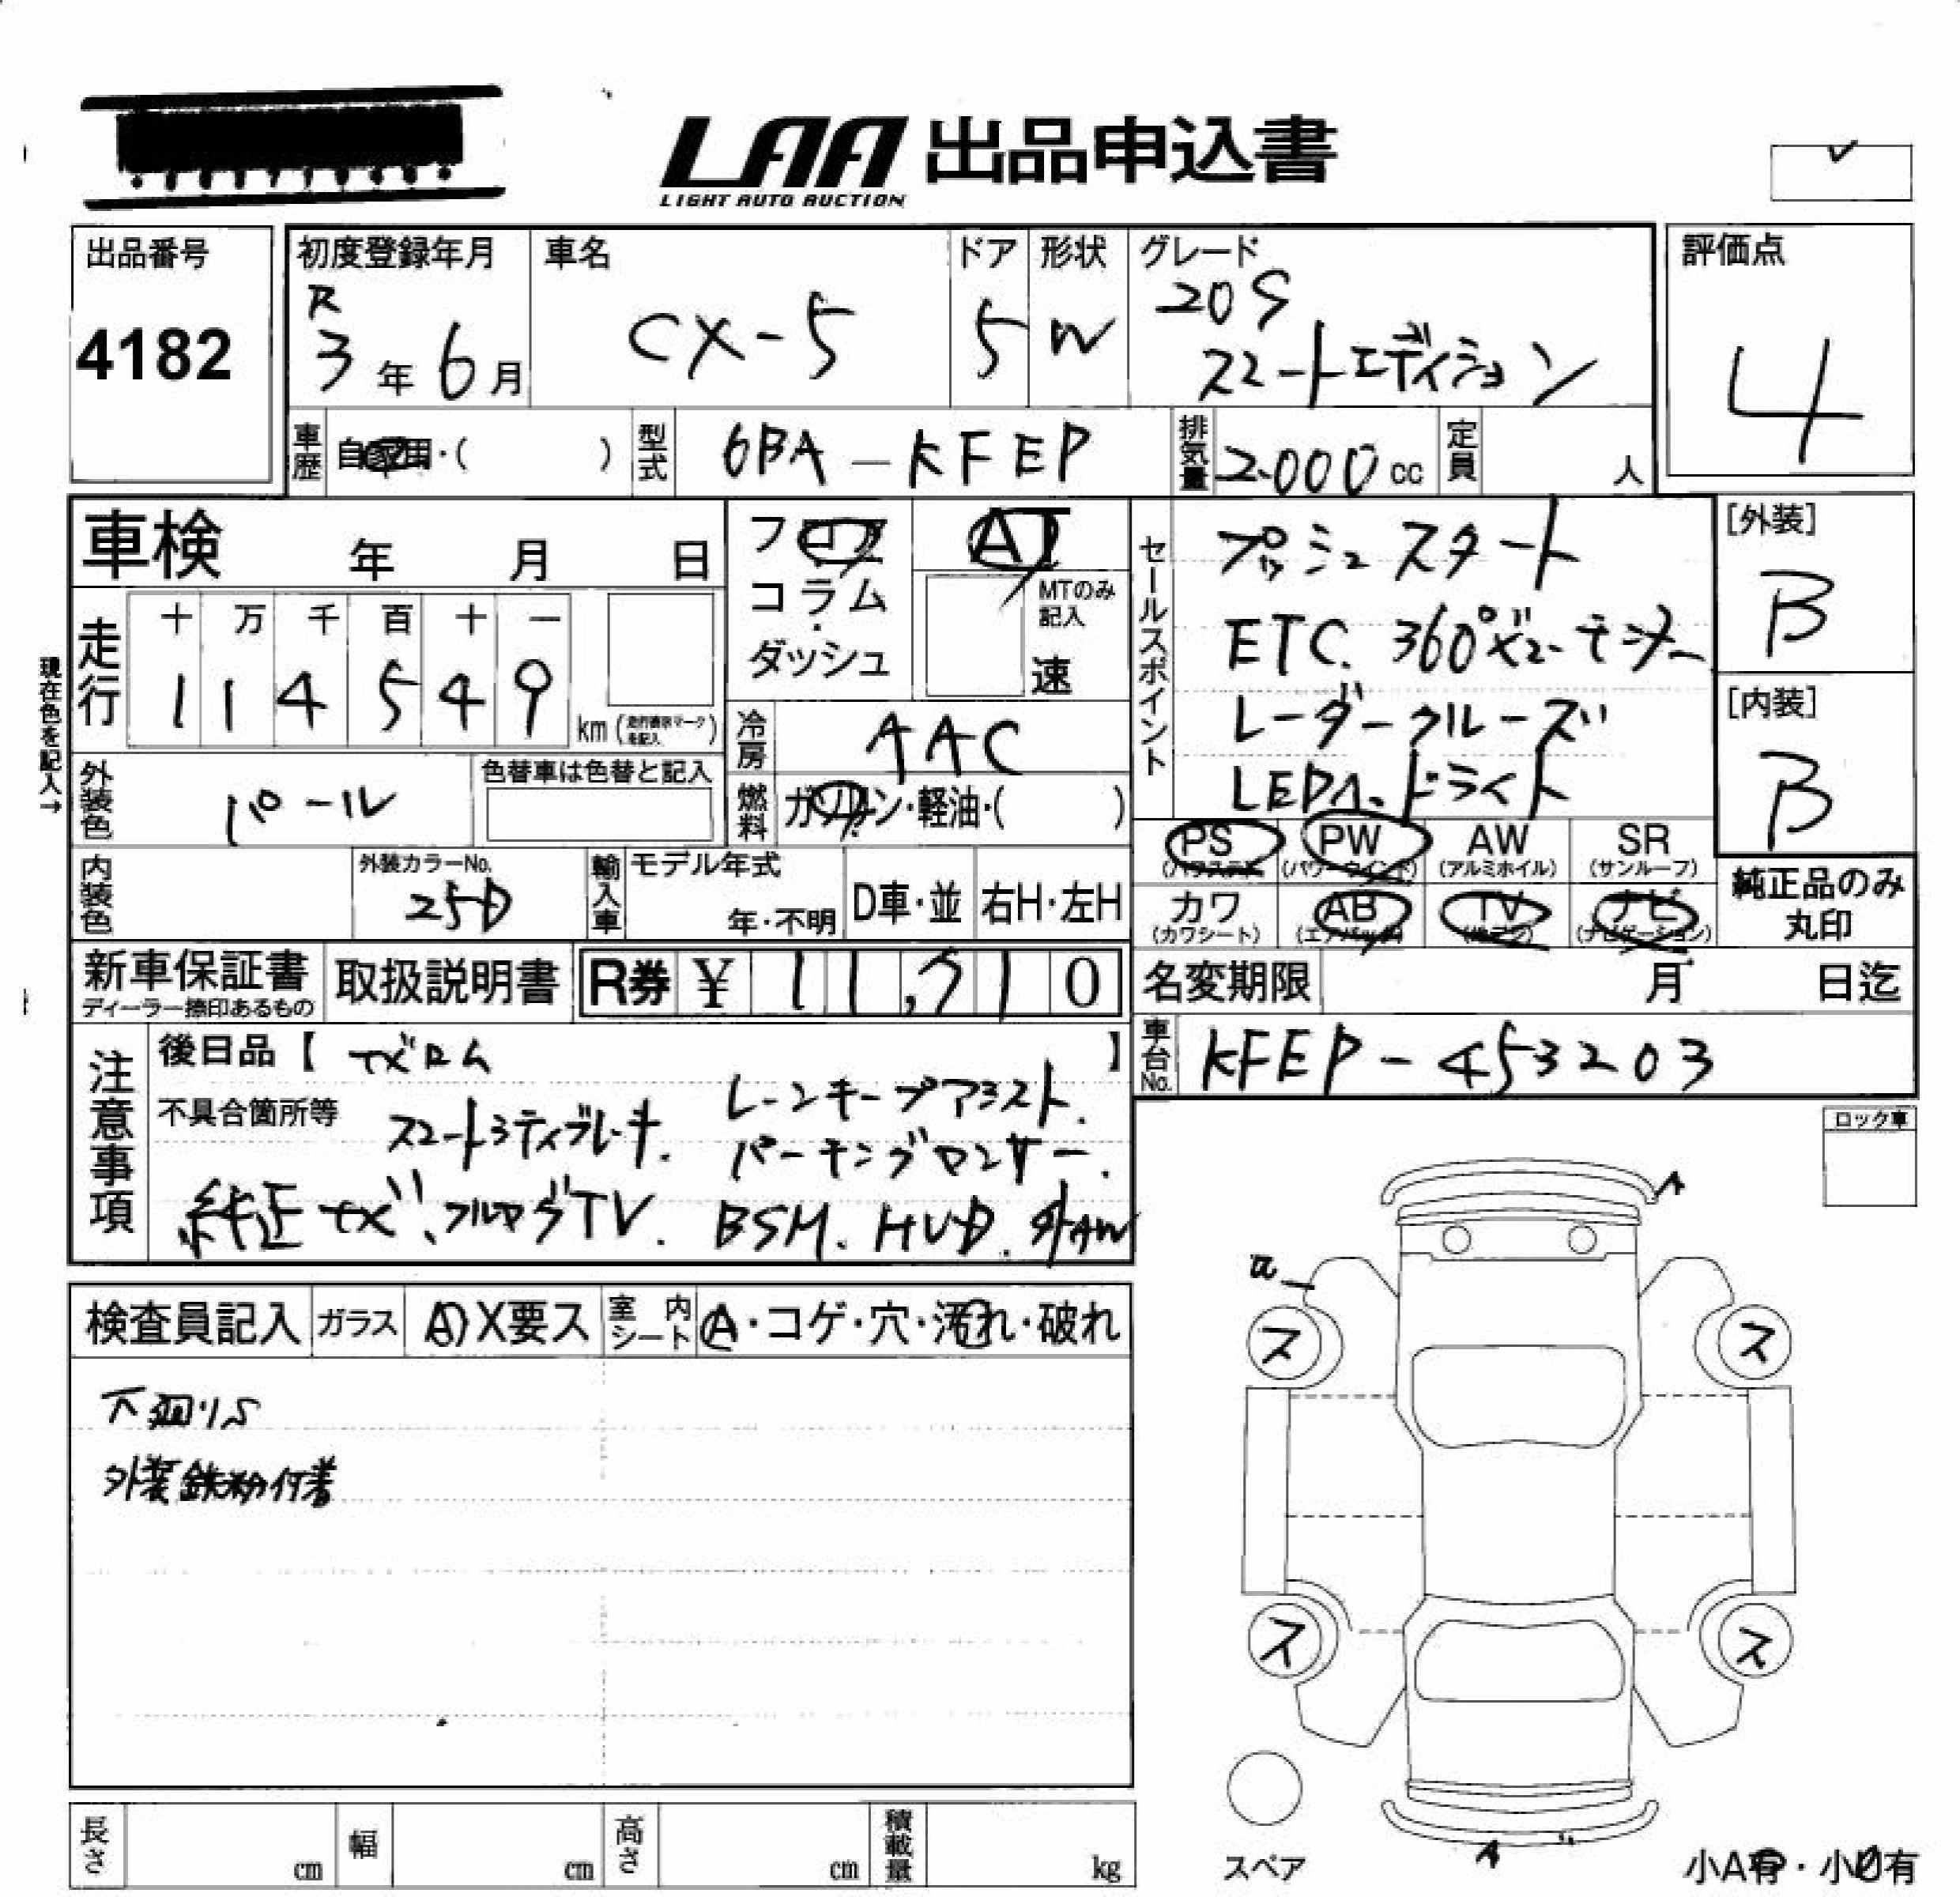 LAA 出品申込書
LIGHT AUTO AUCTION
出品番号
4182
初度登録年月
R
3年6月
車名
CX-5
ドア
5
形状
W
グレード
20S
スマートエディション
評価点
4
車歴
自家用・( )
型式
6BA-KFEP
排気量
2.000cc
定員
人
車検 年 月 日
フロア
コラム
・
ダッシュ
AT
MTのみ
記入
速
走行
十 万 千 百 十 一
1 1 4 5 4 9
km(走行表示マークを記入)
現在色を記入→
冷房
AAC
外装色
パール
色替車は色替と記入
燃料
ガソリン・軽油・( )
内装色
外装カラーNo.
25D
輸入車
モデル年式
年・不明
D車・並
右H・左H
セールスポイント
プッシュスタート
ETC. 360°ビューモニター
レーダークルーズ
LEDヘッドライト
[外装]
B
[内装]
B
PS PW AW SR
(パワステ) (パワーウインド) (アルミホイル) (サンルーフ)
カワ AB TV ナビ
(カワシート) (エアバック) (ナビゲーション)
純正品のみ
丸印
新車保証書
ディーラー捺印あるもの
取扱説明書
R券 ¥ 11,710
名変期限 月 日迄
車台No.
KFEP-453203
注意事項
後日品【 ナビロム 】
不具合箇所等
スマートシティブレーキ.
レーンキープアシスト.
パーキングセンサー.
純正ナビ.フルセグTV.
BSM. HUD. 外AW
ロック車
検査員記入
ガラス
A)X要ス
室内シート
A・コゲ・穴・汚れ・破れ
下廻りS
外装鉄粉付着
A
a
ス
ス
ス
ス
A
スペア
小A有・小U有
長さ cm
幅 cm
高さ cm
積載量 kg